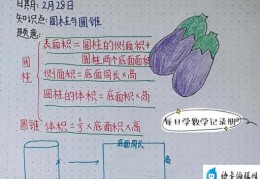 日期: 2月28日
知识点: 圆柱与圆锥
圆柱
表面积=圆柱的侧面积+
圆柱两个底面面积
侧面积=底面周长×高
圆柱的体积=底面积×高
圆锥 体积=⅓×底面积×高
底面周长
高
每日学数学记录册